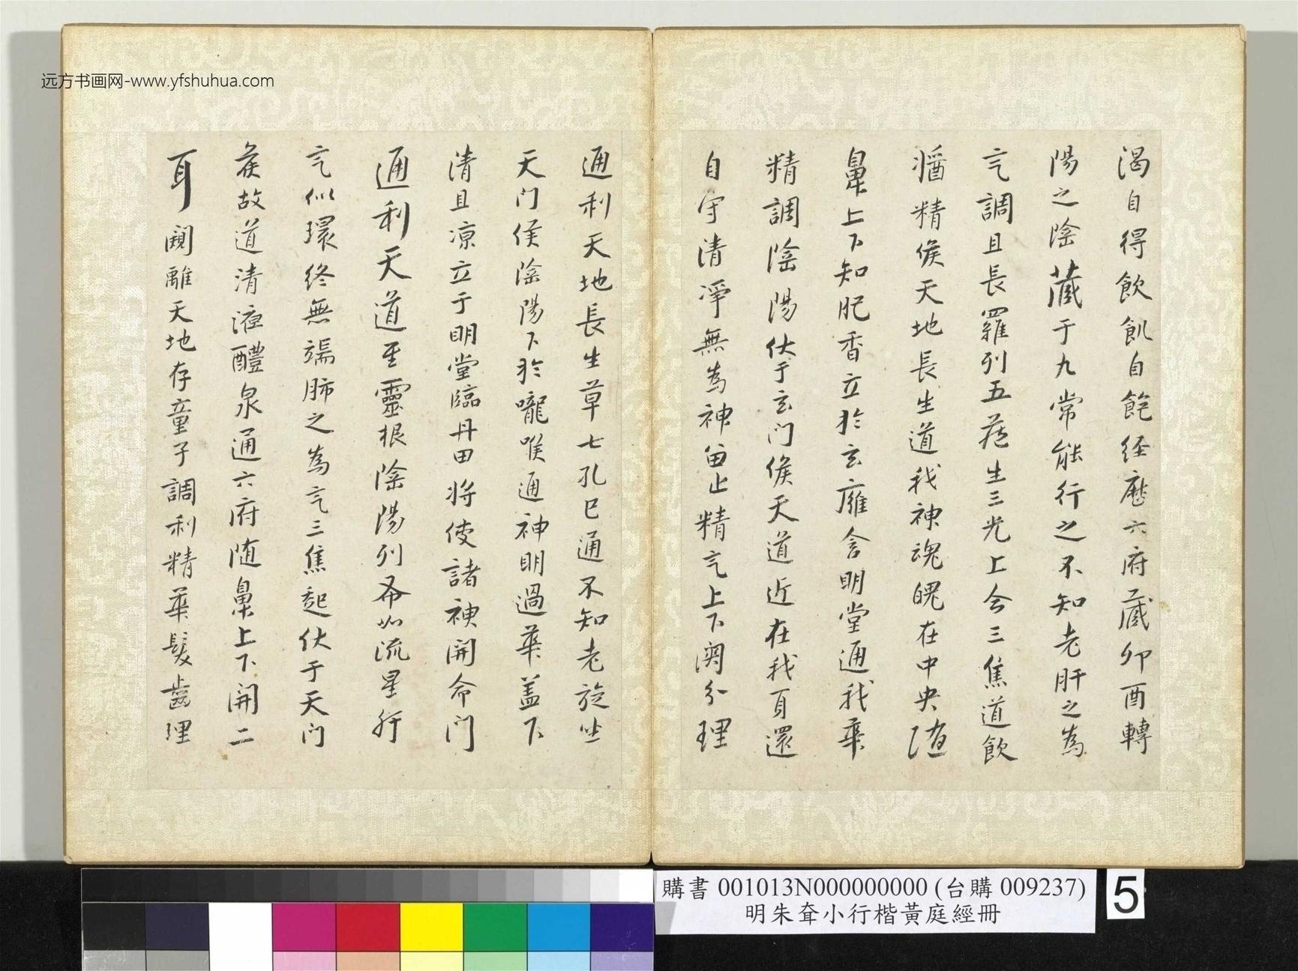 远方书画网-www.yfshuhua.com
渴自得飲飢自飽経歷六府藏卯酉轉
陽之陰藏于九常能行之不知老肝之為
氣調且長羅列五藏生三光上合三焦道飲
醬精候天地長生道我神魂魄在中央隨
鼻上下知肥香立於玄廱含明堂通我華
精調陰陽伏于玄门候天道近在我頁還
自守清凈無為神留止精氣上下關分理
通利天地長生草七孔已通不知老旋坐
天门候陰陽下於嚨喉通神明過華蓋下
清且涼立于明堂臨丹田將使諸神開命门
通利天道至靈根陰陽列布如流星肝
氣似環终無端肺之為氣三焦起伏于天门
候故道清液醴泉通六府随鼻上下開二
耳闚離天地存童子調利精華髮齒理
購書 001013N000000000 (台購 009237)
明朱耷小行楷黃庭經冊
5